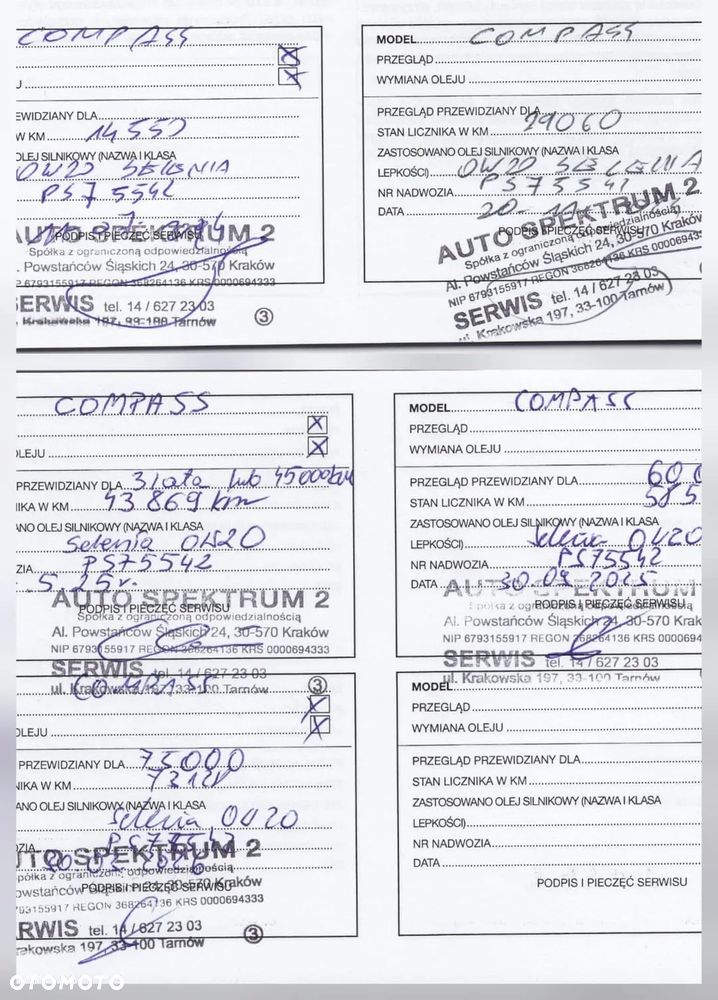 COMPASS
U
ZEWIDZIANY DLA
W KM 14552
OLEJ SILNIKOWY (NAZWA I KLASA
OW20 SELENIA
PS75542
AUTO SPEKTRUM 2
PODPIS I PIECZĘĆ SERWISU
Spółka z ograniczoną odpowiedzialnością
l. Powstańców Śląskich 24, 30-570 Kraków
P 6793155917 REGON 368264136 KRS 0000694333
SERWIS tel. 14 / 627 23 03
. Krakowska 197, 33-100 Tarnów
3
MODEL COMPASS
PRZEGLĄD
WYMIANA OLEJU
PRZEGLĄD PRZEWIDZIANY DLA
STAN LICZNIKA W KM 29060
ZASTOSOWANO OLEJ SILNIKOWY (NAZWA I KLASA
LEPKOŚCI) OW20 SELENIA
NR NADWOZIA PS75542
DATA 20.11
PODPIS I PIECZĘĆ SERWISU
AUTO SPEKTRUM 2
Spółka z ograniczoną odpowiedzialnością
Al. Powstańców Śląskich 24, 30-570 Kraków
NIP 6793155917 REGON 368264136 KRS 000069433
SERWIS tel. 14 / 627 23 03
ul. Krakowska 197, 33-100 Tarnów
COMPASS
OLEJU
PRZEWIDZIANY DLA 3 lata lub 45000km
IKA W KM 43 869 km
NO OLEJ SILNIKOWY (NAZWA I KLASA
Selenia 0W20
ZIA PS75542
. 5 25 r.
AUTO SPEKTRUM 2
PODPIS I PIECZĘĆ SERWISU
Spółka z ograniczoną odpowiedzialnością
Al. Powstańców Śląskich 24, 30-570 Kraków
NIP 6793155917 REGON 368264136 KRS 0000694333
SERWIS tel. 14 / 627 23 03
ul. Krakowska 197, 33-100 Tarnów
3
MODEL COMPASS
PRZEGLĄD
WYMIANA OLEJU
PRZEGLĄD PRZEWIDZIANY DLA 600
STAN LICZNIKA W KM 585
ZASTOSOWANO OLEJ SILNIKOWY (NAZWA I KLASA
LEPKOŚCI) Selenia 0W20
NR NADWOZIA PS75542
DATA 30.09.2025
AUTO SPEKTRUM
PODPIS I PIECZĘĆ SERWISU
Spółka z ograniczoną odpowiedzialnością
Al. Powstańców Śląskich 24, 30-570 Kraków
NIP 6793155917 REGON 368264136 KRS 0000694
SERWIS tel. 14 / 627 23 03
ul. Krakowska 197, 33-100 Tarnów
COMPASS
OLEJU
PRZEWIDZIANY DLA 75000
NIKA W KM
ANO OLEJ SILNIKOWY (NAZWA I KLASA
Selenia 0W20
ZIA
UTO SPEKTRUM 2
półka z ograniczoną odpowiedzialnością
PODPIS I PIECZĘĆ SERWISU
owstańców 24, 30-570 Kraków
793155917 REGON 368264136 KRS 0000694333
RWIS tel. 14 / 627 23 03
rakowska 197, 33-100 Tarnów
3
MODEL
PRZEGLĄD
WYMIANA OLEJU
PRZEGLĄD PRZEWIDZIANY DLA
STAN LICZNIKA W KM
ZASTOSOWANO OLEJ SILNIKOWY (NAZWA I KLASA
LEPKOŚCI)
NR NADWOZIA
DATA
PODPIS I PIECZĘĆ SERWISU
OTOMOTO